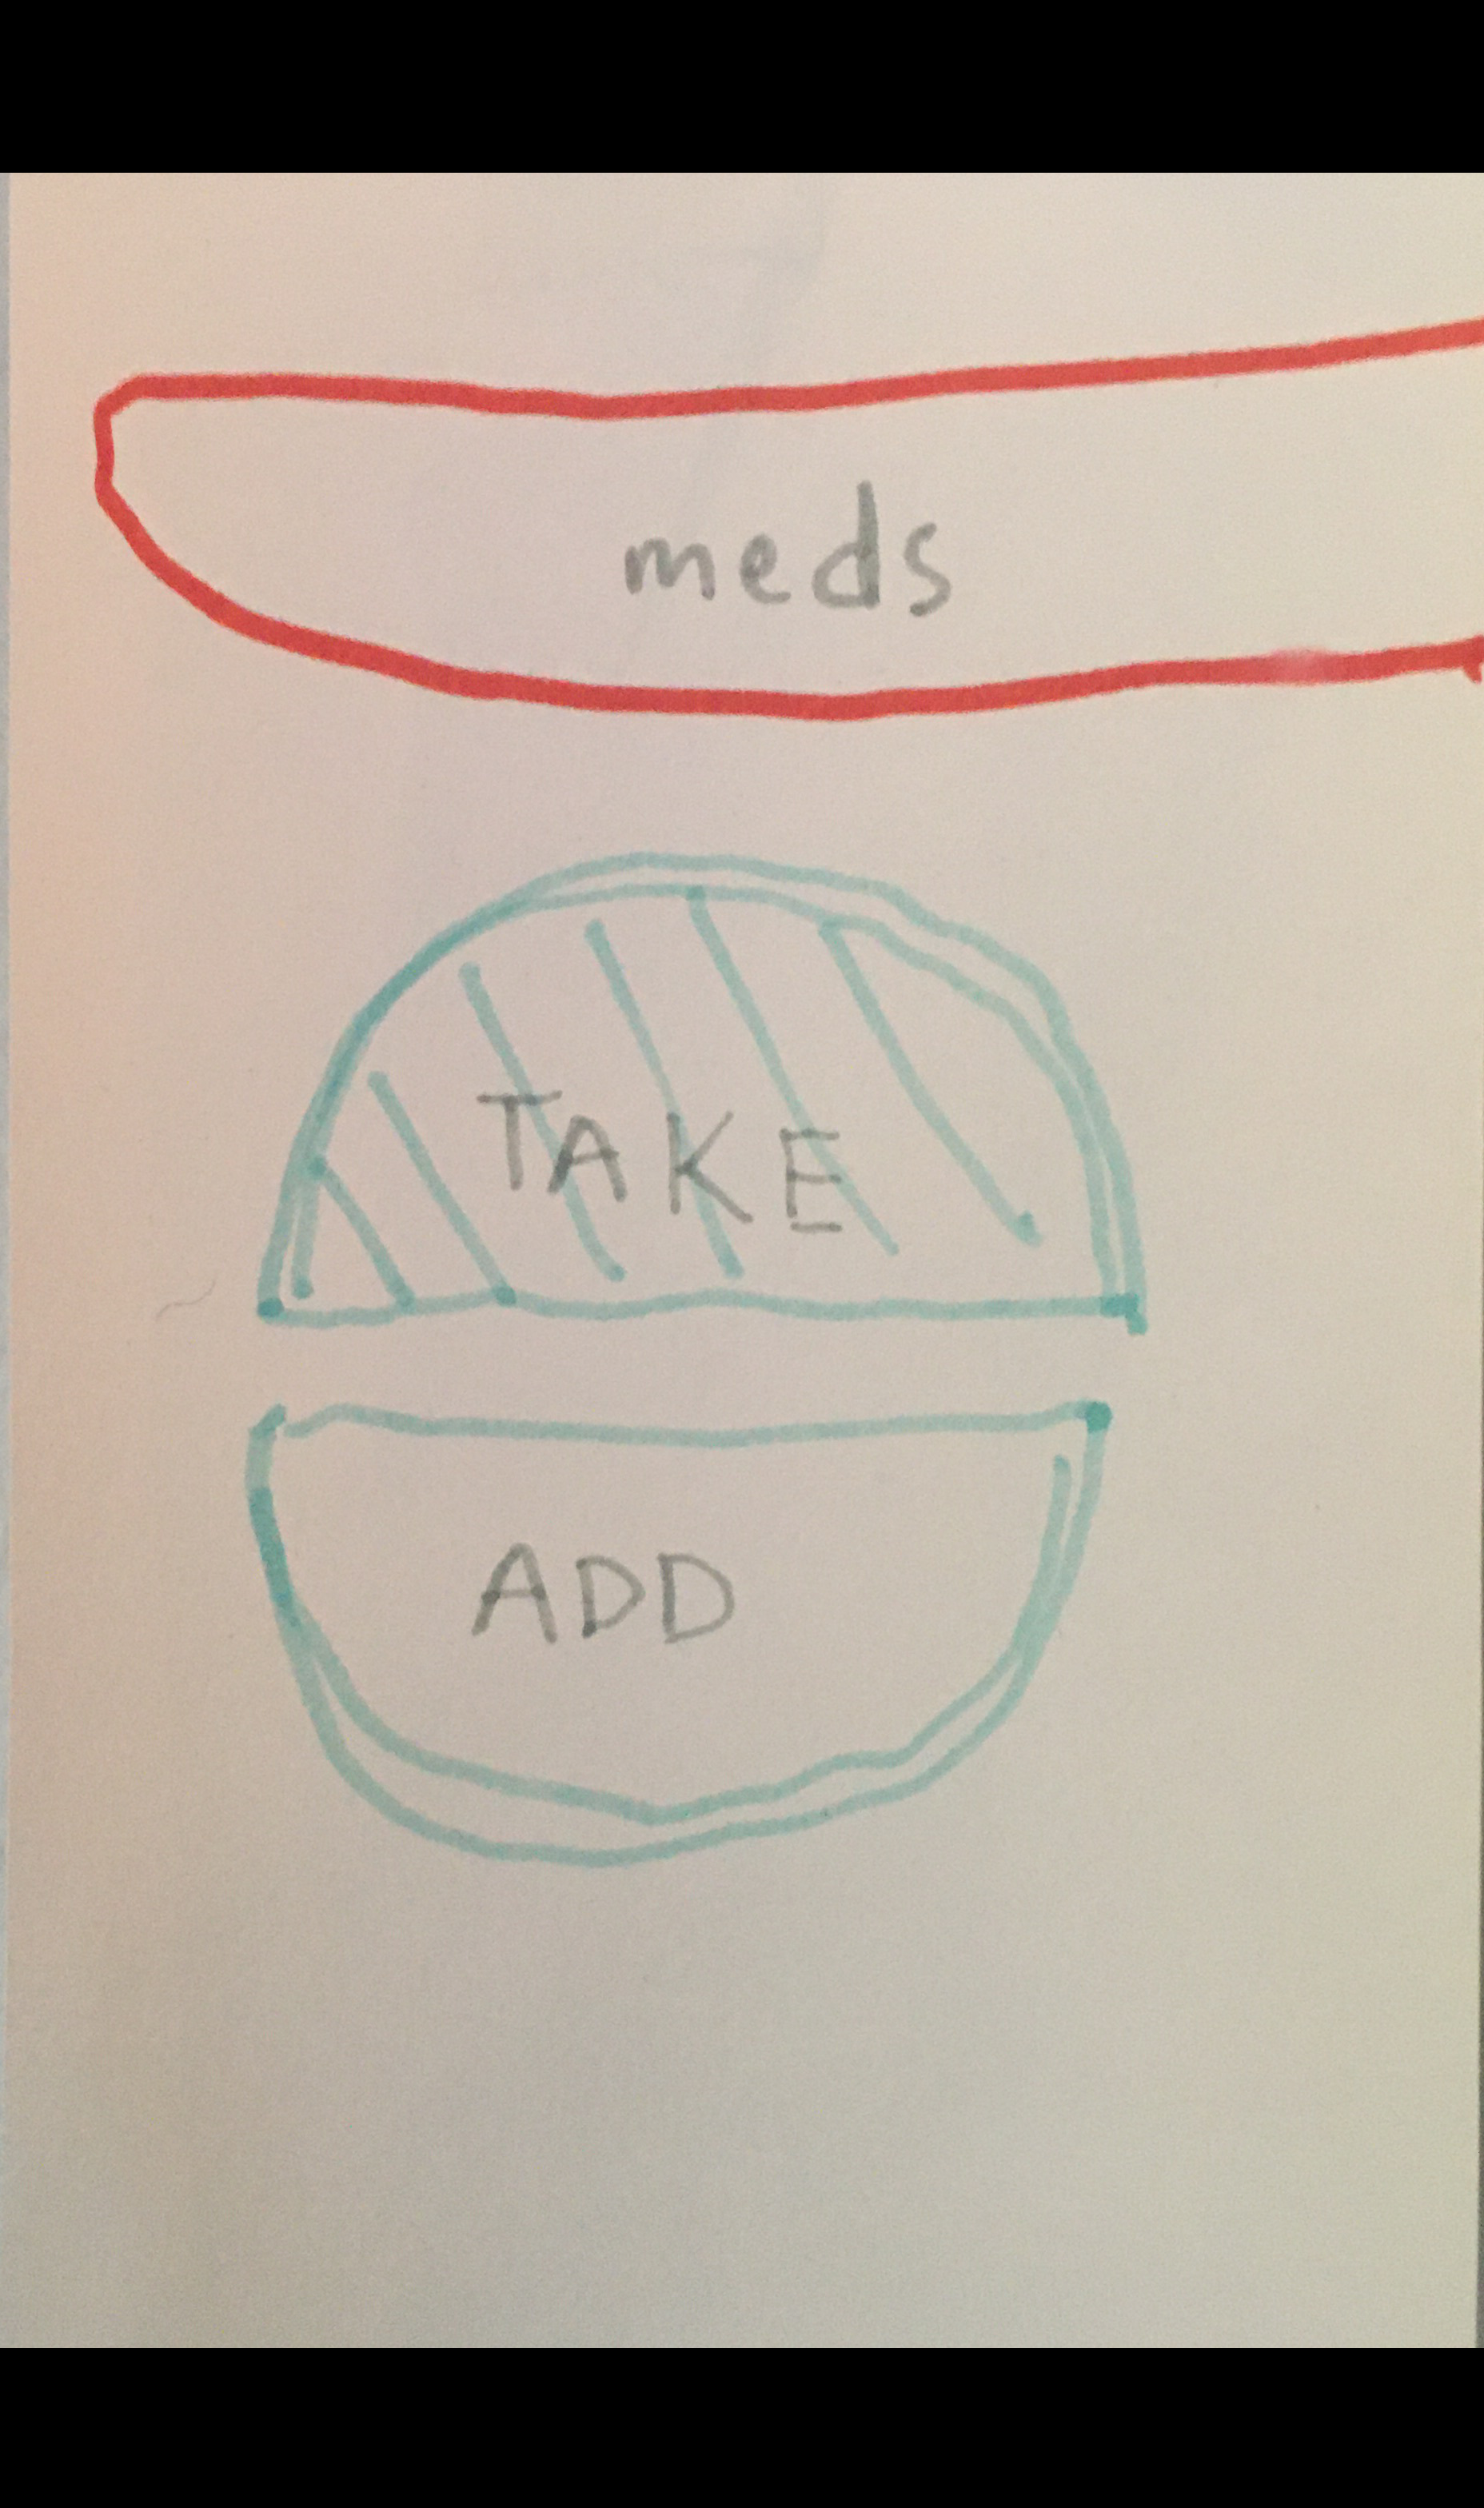 meds
TAKE
ADD